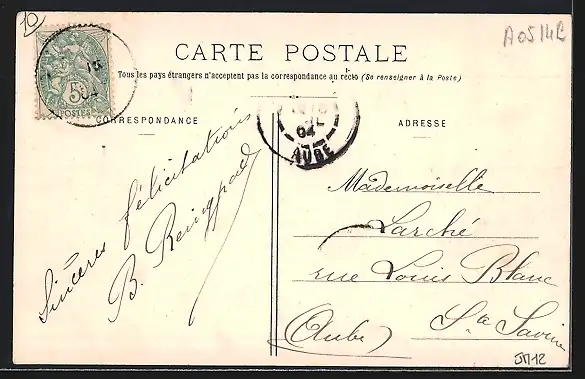 10
A0514B
CARTE POSTALE
Tous les pays étrangers n'acceptent pas la correspondance au recto (Se renseigner à la Poste)
CORRESPONDANCE
ADRESSE
5c
POSTES
15
04
AUBE
Sincères félicitations
B.
Mademoiselle
Larché
rue Louis Blanc
Ste Savine
(Aube)
JM12